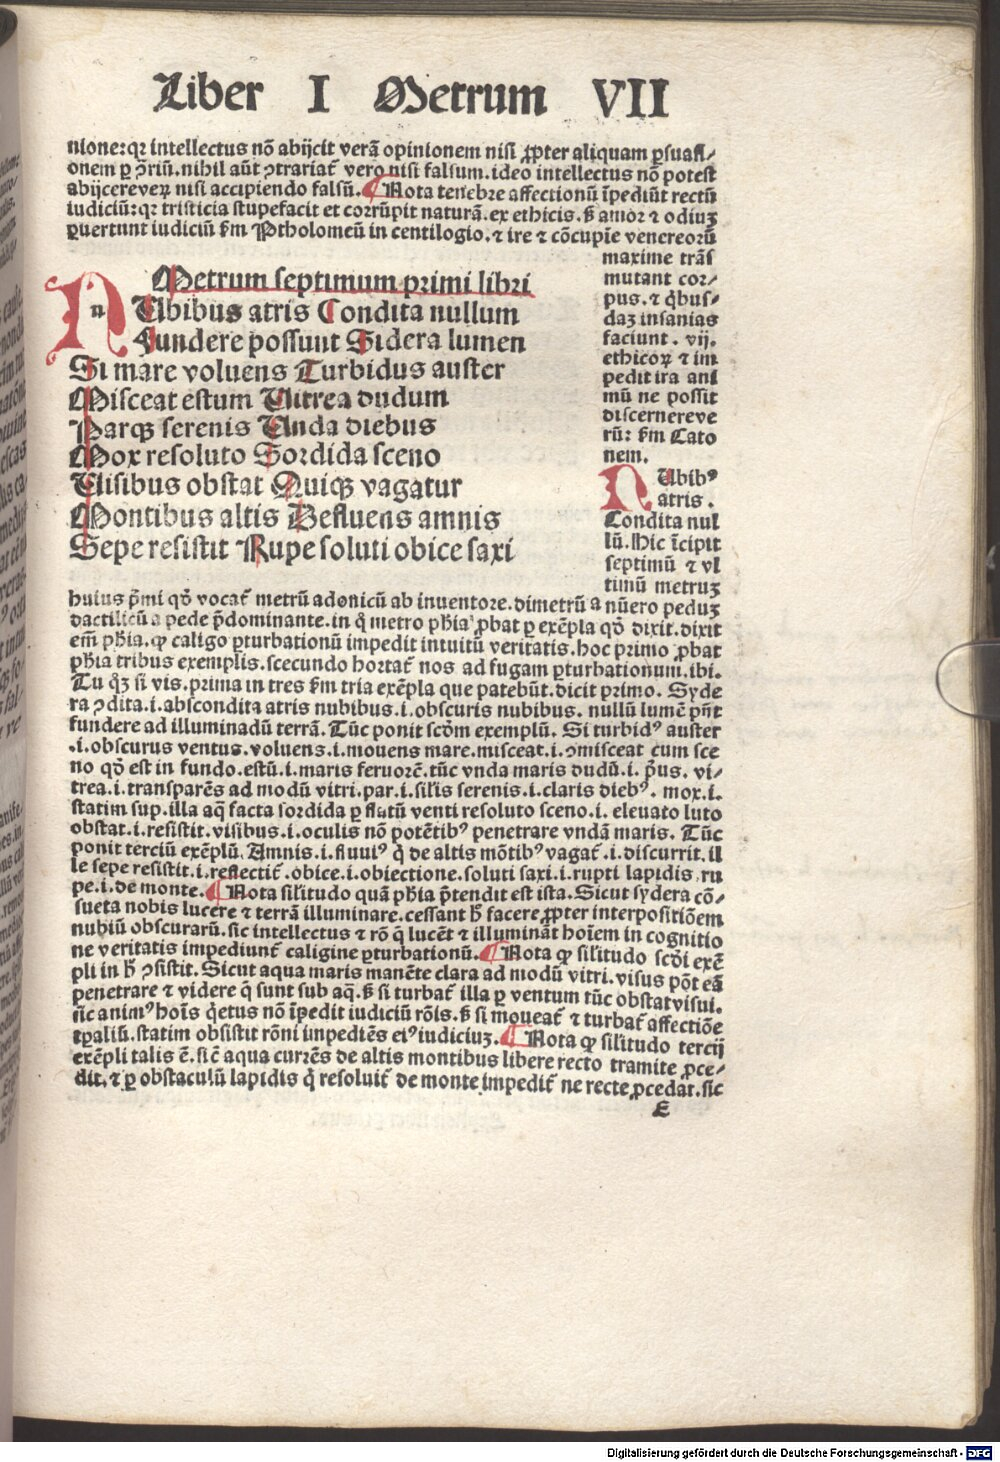 Liber I Metrum VII
nione:qꝛ intellectus nō abijcit verā opinionem nisi ꝓpter aliquam ꝑsuasi⸗
onem ꝑ ꝯriū. nihil aūt ꝯtrariat᷑ vero nisi falsum. ideo intellectus nō potest
abijcere veꝝ nisi accipiendo falsū. ¶ Nota tenebre affectionū īpediūt rectū
iudiciū: qꝛ tristicia stupefacit et corrūpit naturā. ex ethicis. ß amor ⁊ odiuꝫ
ꝑuertunt iudiciū ẜm Ptholomeū in centilogio. ⁊ ire ⁊ cōcupīe venereoꝝ
maxime trās
mutant cor⸗
pus. ⁊ q̇bus⸗
daꝫ insanias
faciunt. vij.
ethicoꝝ ⁊ im
pedit ira ani
mū ne possit
discernere ve
rū: ẜm Cato
nem.
Metrum septimum primi libri
n Ubibus atris Condita nullum
Fundere possunt Sidera lumen
Si mare voluens Turbidus auster
Misceat estum Uitrea dudum
Parqꝫ serenis Unda diebus
Mox resoluto Sordida sceno
Uisibus obstat Quiqꝫ vagatur
Montibus altis Defluens amnis
Sepe resistit Rupe soluti obice saxi
N Ubibꝰ
atris.
Condita nul
lū. Hic īcipit
septimū ⁊ vl
timū metruꝫ
huius p̄mi qd̓ vocat᷑ metrū adonicū ab inuentore. dimetrū a nūero peduꝫ
dactilicū a pede p̄dominante. in q̇ metro pħia ꝓbat ꝑ exēpla qd̓ dixit. dixit
em̄ pħia. ꝙ caligo ꝑturbationū impedit intuitū veritatis. hoc primo ꝓbat
pħia tribus exemplis. scecundo hortat᷑ nos ad fugam ꝑturbationum. ibi.
Tu qꝫ si vis. prima in tres ẜm tria exēpla que patebūt. dicit primo. Syde
ra ꝯdita .i. abscondita atris nubibus .i. obscuris nubibus. nullū lumē pn̄t
fundere ad illuminadū terrā. Tūc ponit scd̓m exemplū. Si turbidꝰ auster
.i. obscurus ventus. voluens .i. mouens mare. misceat .i. ꝯmisceat cum sce
no qd̓ est in fundo. estū .i. maris feruorē. tūc vnda maris dudū .i. p̄us. vi⸗
trea .i. transparēs ad modū vitri. par .i. silis serenis .i. claris diebꝰ. mox .i.
statim sup. illa aq̄ facta sordida ꝑ flatū venti resoluto sceno .i. eleuato luto
obstat .i. resistit. visibus .i. oculis nō potētibꝰ penetrare vndā maris. Tūc
ponit terciū exēplū. Amnis .i. fluuiꝰ q̇ de altis mōtibꝰ vagat᷑ .i. discurrit. il
le sepe resistit .i. reflectit᷑. obice .i. obiectione. soluti saxi .i. rupti lapidis. ru
pe .i. de monte. ¶ Nota silitudo quā pħia p̄tendit est ista. Sicut sydera cō⸗
sueta nobis lucere ⁊ terrā illuminare. cessant ħ facere ꝓpter interpositiōem
nubiū obscurarū. sic intellectus ⁊ rō q̇ lucēt ⁊ illumināt hoīem in cognitio
ne veritatis impediunt᷑ caligine ꝑturbationū. ¶ Nota ꝙ silitudo scd̓i exē
pli in ħ ꝯsistit. Sicut aqua maris manēte clara ad modū vitri. visus pōt eā
penetrare ⁊ videre q̇ sunt sub aq̄. ß si turbat᷑ illa ꝑ ventum tūc obstat visui.
sic animꝰ hoīs q̇etus nō īpedit iudiciū rōis. ß si moueat᷑ ⁊ turbat᷑ affectiōe
tꝑaliū. statim obsistit rōni impediēs eiꝰ iudiciuꝫ. ¶ Nota ꝙ silitudo tercij
exēpli talis ē. sic̄ aqua currēs de altis montibus libere recto tramite ꝓce⸗
dit. ⁊ ꝑ obstaculū lapidis q̇ resoluit᷑ de monte impedit᷑ ne recte ꝓcedat. sic
E
Digitalisierung gefördert durch die Deutsche Forschungsgemeinschaft - DFG